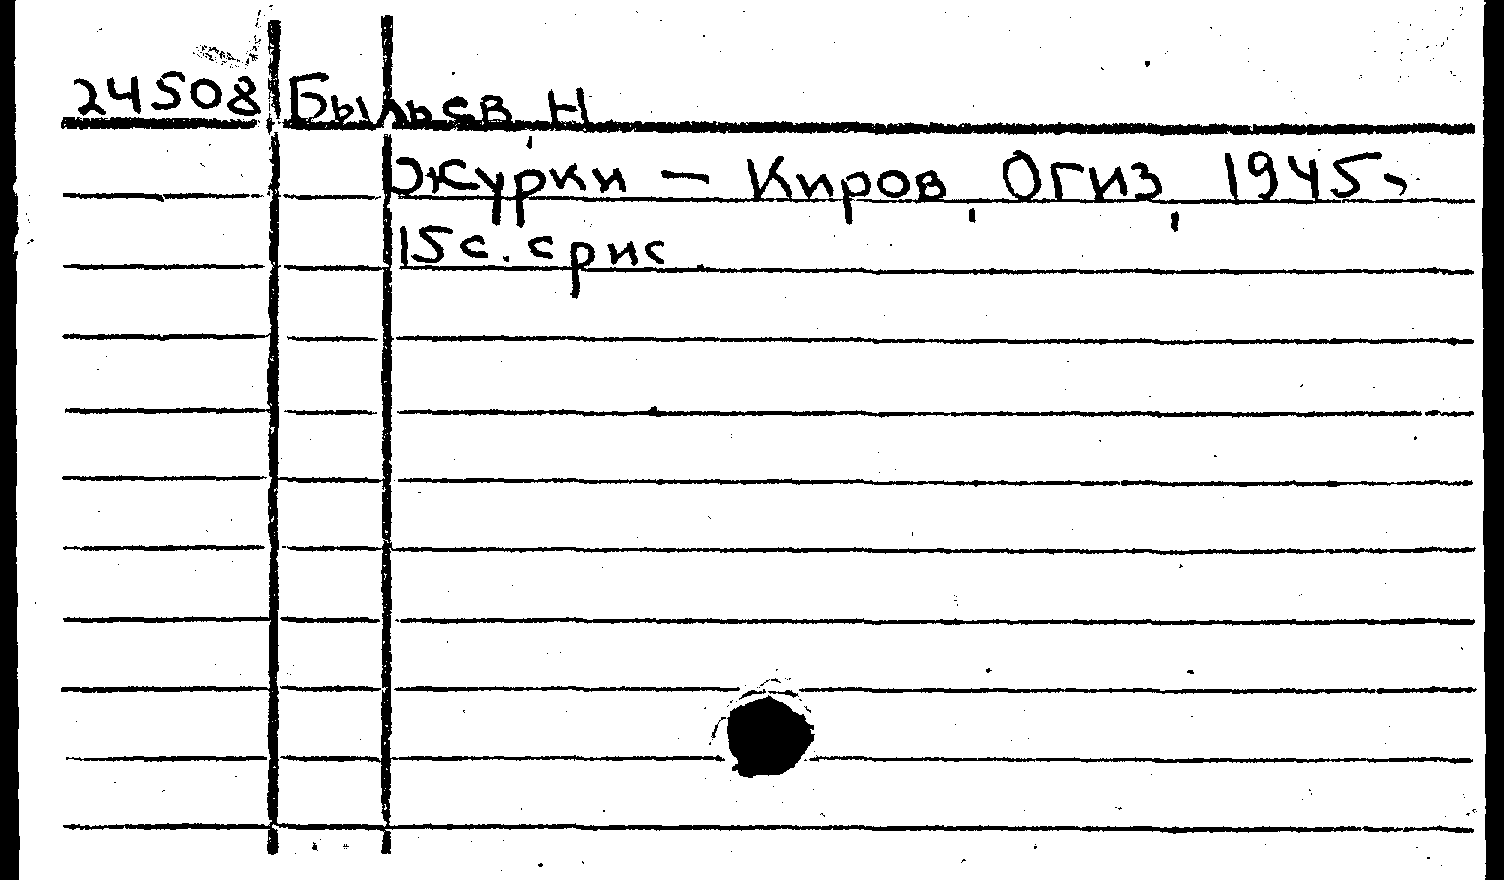 24508 Быльев Н
Журки - Киров, Огиз, 1945,
15 с. с рис.